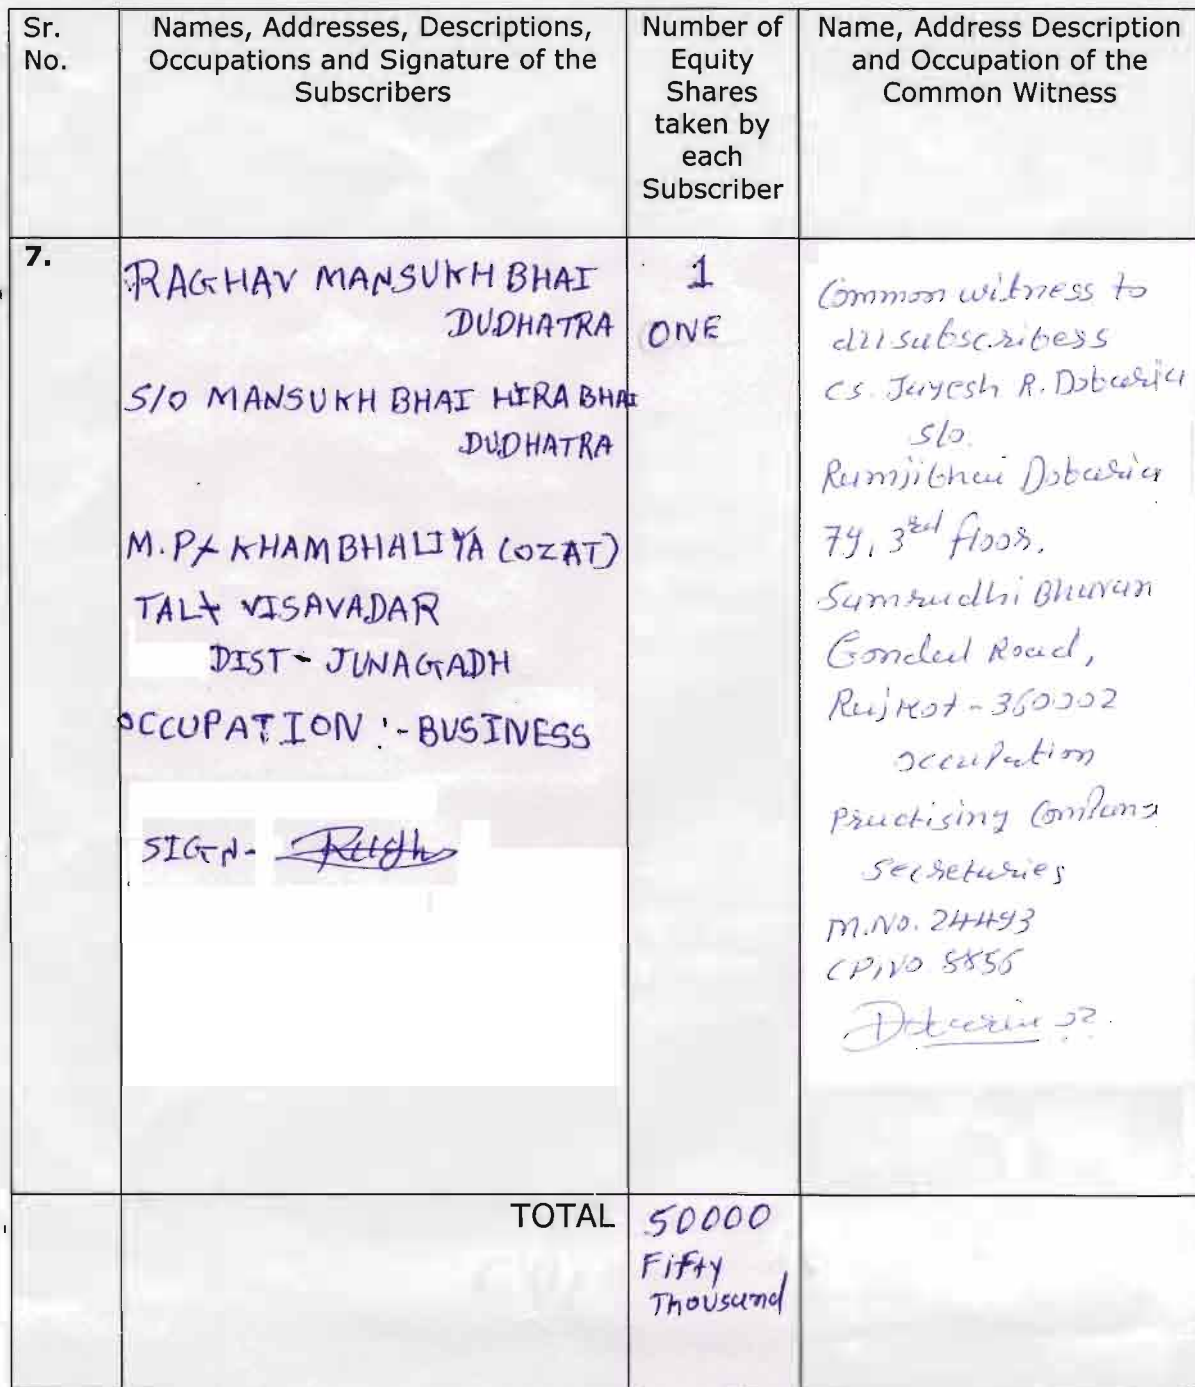 Sr.
No.
Names, Addresses, Descriptions,
Occupations and Signature of the
Subscribers
Number of
Equity
Shares
taken by
each
Subscriber
Name, Address Description
and Occupation of the
Common Witness
7.
RAGHAV MANSUKH BHAI
DUDHATRA
S/O MANSUKH BHAI HIRA BHAI
DUDHATRA
M.P KHAMBHALIYA (OZAT)
TAL VISAVADAR
DIST - JUNAGADH
OCCUPATION :- BUSINESS
SIGN-
1
ONE
Common witness to
all subscribers
CS. Jayesh R. Dobaria
S/o.
Ramjibhai Dobaria
3rd floor,
Samrudhi Bhuvan
Gondal Road,
Rajkot - 360002
occupation
Practising Company
Secretaries
M.No. 24493
CP.NO
TOTAL
50000
Fifty
Thousand